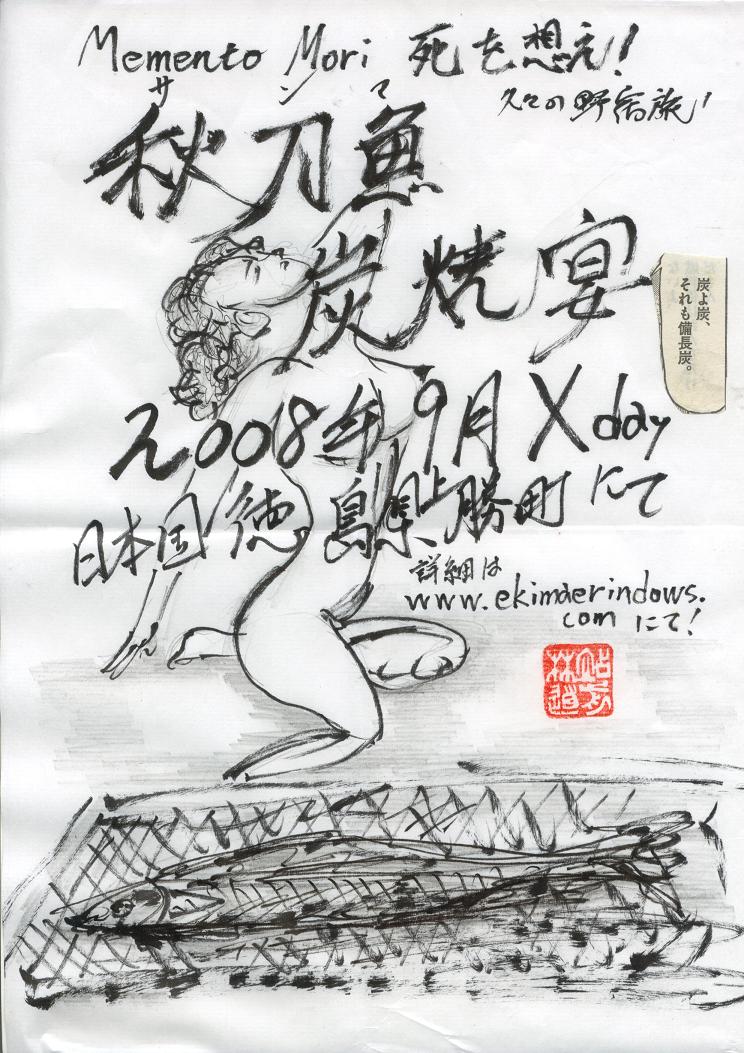 Memento Mori 死を想え!
久々の野宿旅!
サンマ
秋刀魚
炭焼宴
炭よ炭、
それも備長炭。
2008年9月 X day
日本国徳島県上勝町にて
詳細は
www.ekimaerindows.
com にて!